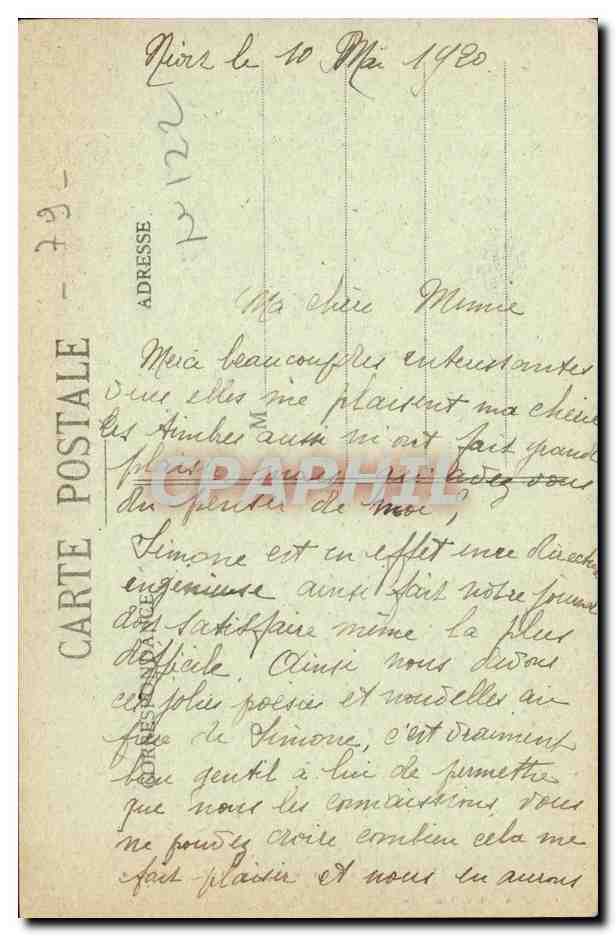 Niort le 10 Mai 1920
N 122
- 79 -
CARTE POSTALE
ADRESSE
M
CORRESPONDANCE
Ma chère Mimie
Merci beaucoup très intéressantes
vues elles me plaisent ma chérie
les timbres aussi m'ont fait grand
plaisir mais qu'avez vous
du penser de moi?
Simone est en effet une directrice
ingénieuse ainsi fait notre journal
doit satisfaire même la plus
difficile. Ainsi nous devons
ces jolies poesies et nouvelles au
frère de Simone, c'est vraiment
bien gentil à lui de permettre
que nous les connaissions, vous
ne pouvez croire combien cela me
fait plaisir et nous en aurons
CPAPHIL